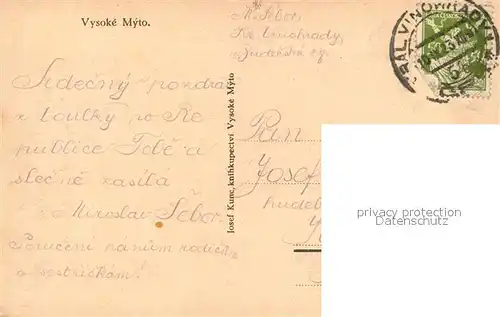 Vysoké Mýto.
M. Šebor
Kr. Vinohrady,
KRÁL. VINOHRADY
Srdečný pozdrav
z toulky po Re
publice Tobě a
slečně zasílá
Miroslav Šebor.
Poručení pánům rodičům
a sestričkám!
Josef Kunc, knihkupectví Vysoké Mýto
Pan
Josef
hudeb
privacy protection
Datenschutz